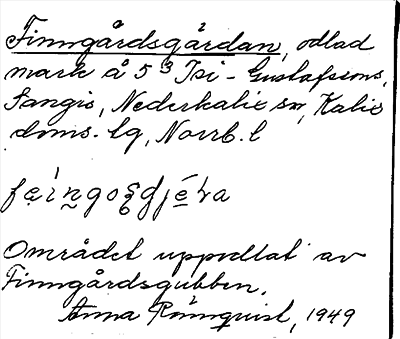 Finngårdsgårdan, odlad
mark å 5³ Isi-Gustafssons,
Sangis, Nederkalix sn, Kalix
doms. lg, Norrb. l

Området uppodlat av
Finngårdsgubben.
Anna Rönnquist, 1949